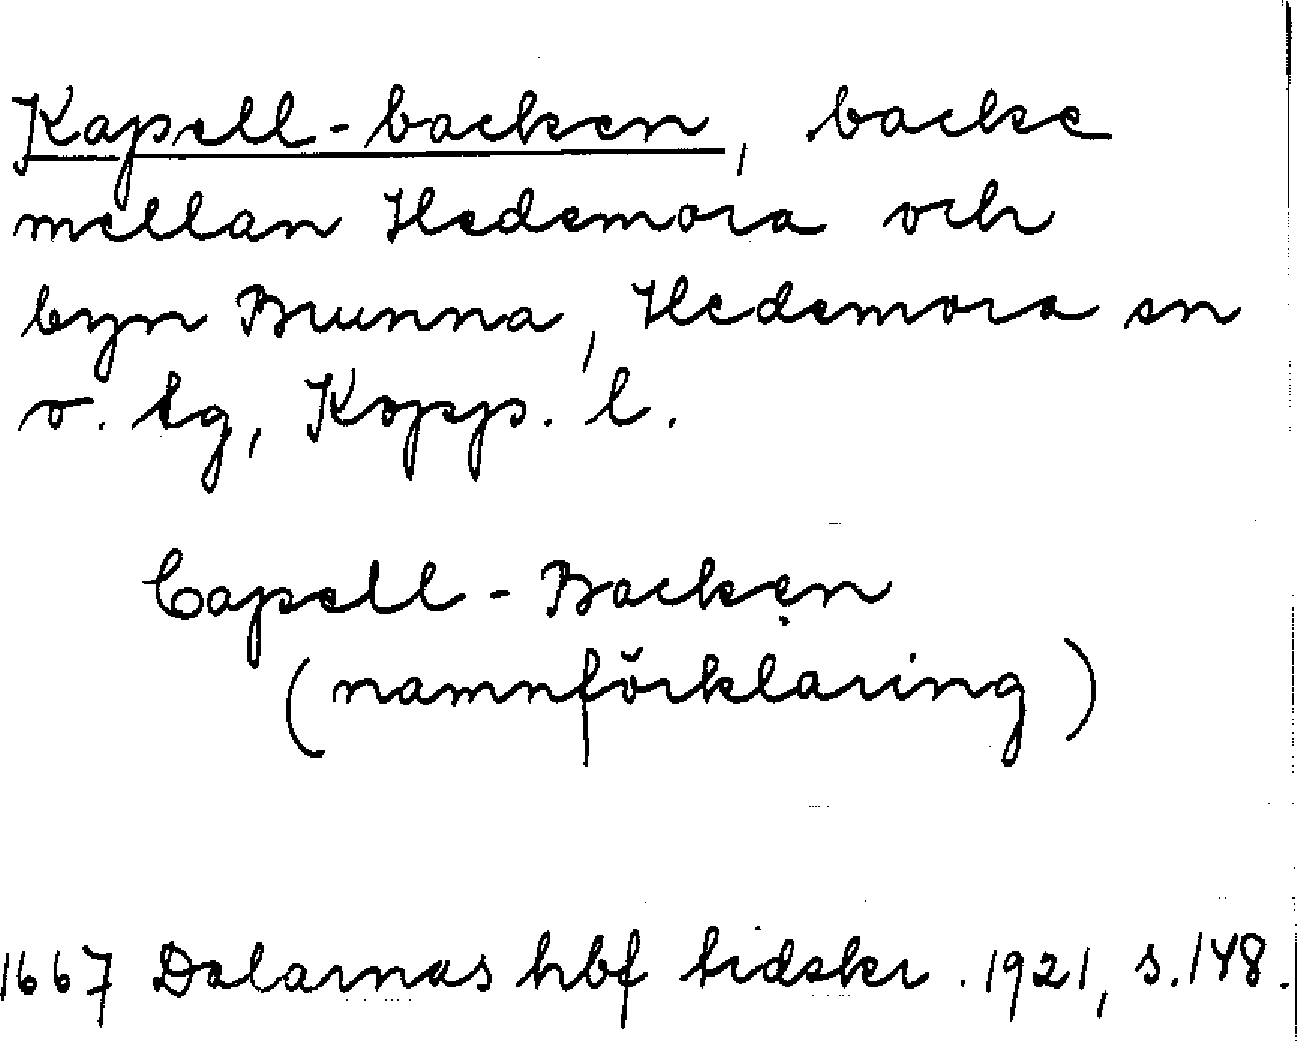 Kapell-backen, backe
mellan Hedemora och
byn Brunna, Hedemora sn
o. tg, Kopp. l.
Capell-Backen
(namnförklaring)
1667 Dalarnas hbf tidskr. 1921, s. 148.